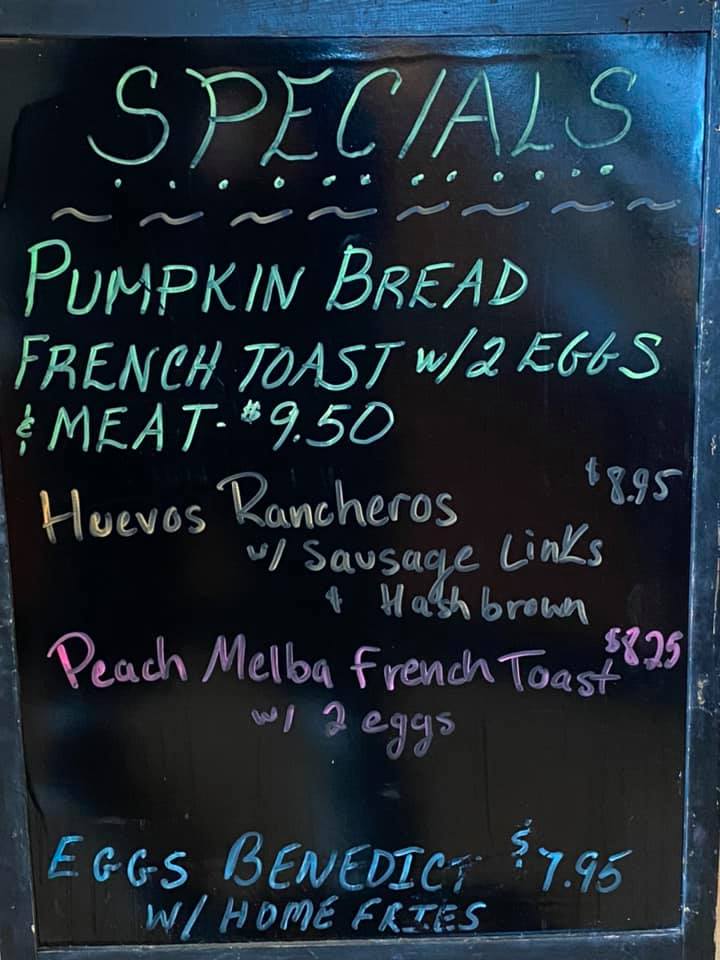 SPECIALS
PUMPKIN BREAD
FRENCH TOAST w/2 EGGS
& MEAT - $9.50
Huevos Rancheros $8.95
w/ Sausage Links
& Hashbrown
Peach Melba French Toast $8.25
w/ 2 eggs
EGGS BENEDICT $7.95
W/ HOME FRIES